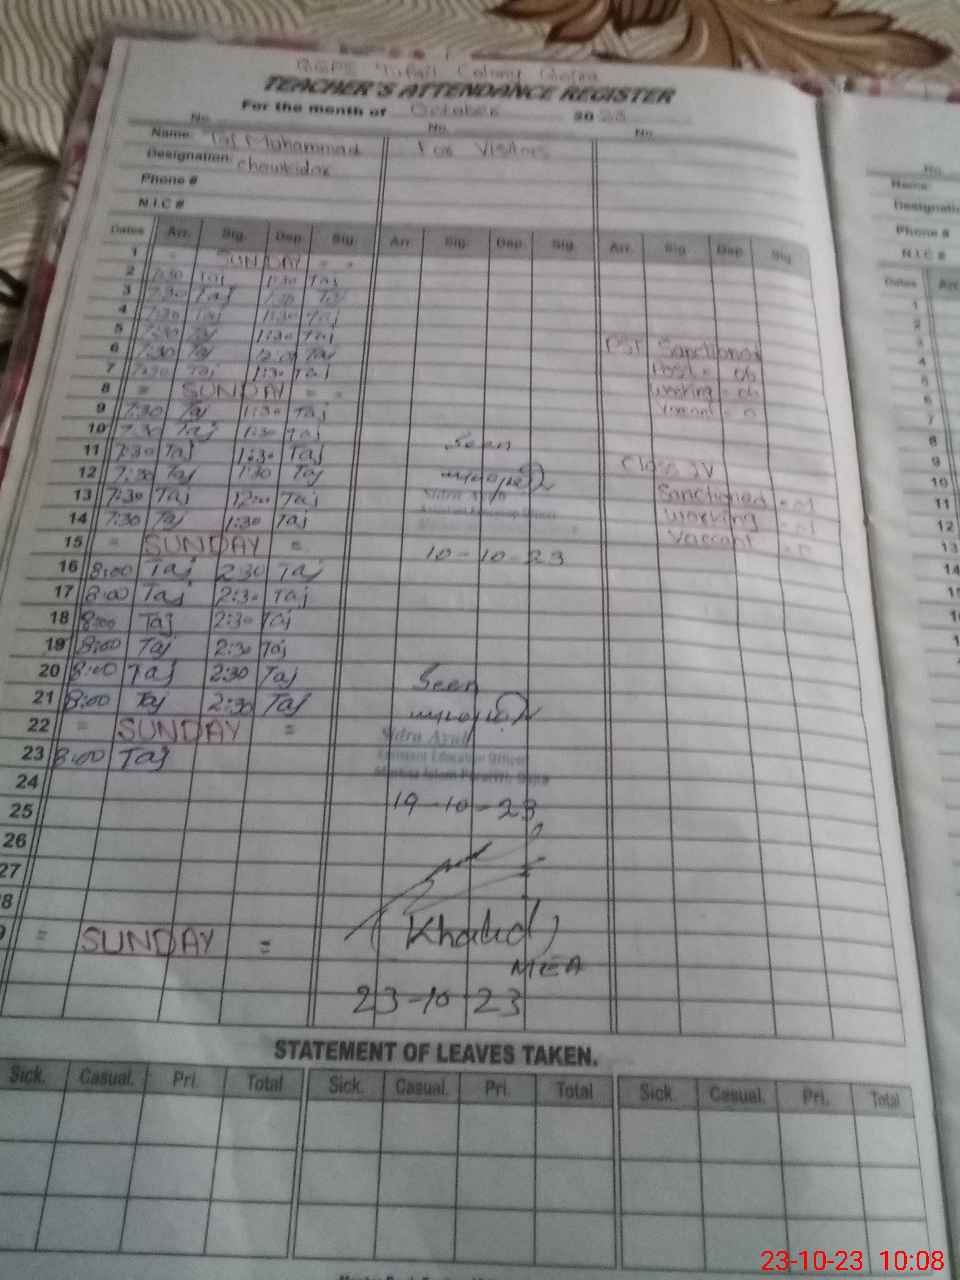 Colony
TEACHER'S ATTENDANCE REGISTER
For the month of October 2023
No. No. No.
Name: Taj Muhammad For Visitors
Designation: Chowkidar
Phone #
N.I.C #
Dates Arr. Sig. Dep. Sig. Arr. Sig. Dep. Sig. Arr. Sig. Dep. Sig.
1 = SUNDAY = =
2 7:30 Taj 1:30 Taj
3 7:30 Taj 1:30 Taj
4 7:30 Taj 1:30 Taj
5 7:30 Taj 1:30 Taj
6 7:30 Taj 12:00 Taj PST Sanctioned
7 7:30 Taj 1:30 Taj Post = 06
8 = SUNDAY = = working = 06
9 7:30 Taj 1:30 Taj Vacant = 0
10 7:30 Taj 1:30 Taj
11 7:30 Taj 1:30 Taj Seen Class IV
12 7:30 Taj 1:30 Taj Sanctioned = 01
13 7:30 Taj 12:00 Taj Sidra Ayub working = 01
14 7:30 Taj 1:30 Taj Vaccant = 0
15 = SUNDAY = 10-10-23
16 8:00 Taj 2:30 Taj
17 8:00 Taj 2:30 Taj
18 8:00 Taj 2:30 Taj
19 8:00 Taj 2:30 Taj
20 8:00 Taj 2:30 Taj Seen
21 8:00 Taj 2:30 Taj
22 = SUNDAY = Sidra Ayub
23 8:00 Taj Assistant Education Officer
24
25 19-10-23
26
27
28
9 = SUNDAY = (Khalid)
MEA
23-10-23
STATEMENT OF LEAVES TAKEN.
Sick. Casual. Pri. Total Sick. Casual. Pri. Total Sick. Casual. Pri. Total
No.
Name:
Designatio
Phone #
N.I.C #
Dates Arr
1
2
3
4
5
6
7
8
9
10
11
12
13
14
23-10-23 10:08